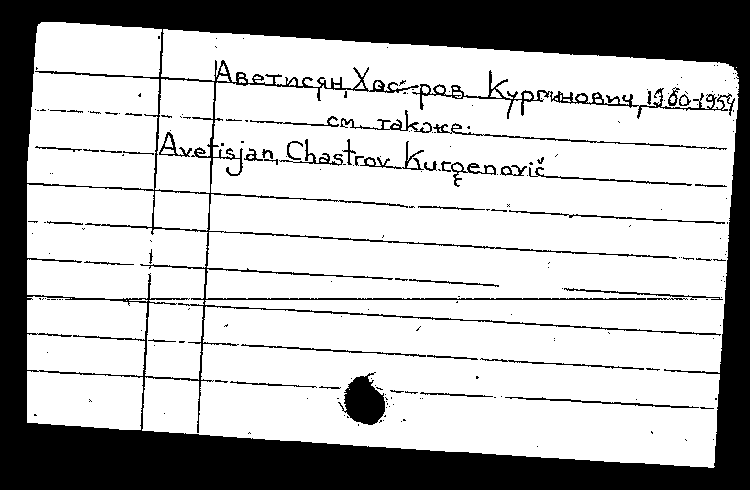 Аветисян, Хастров Кургинович, 1900-1954
см. также:
Avetisjan, Chastrov Kurgenovič